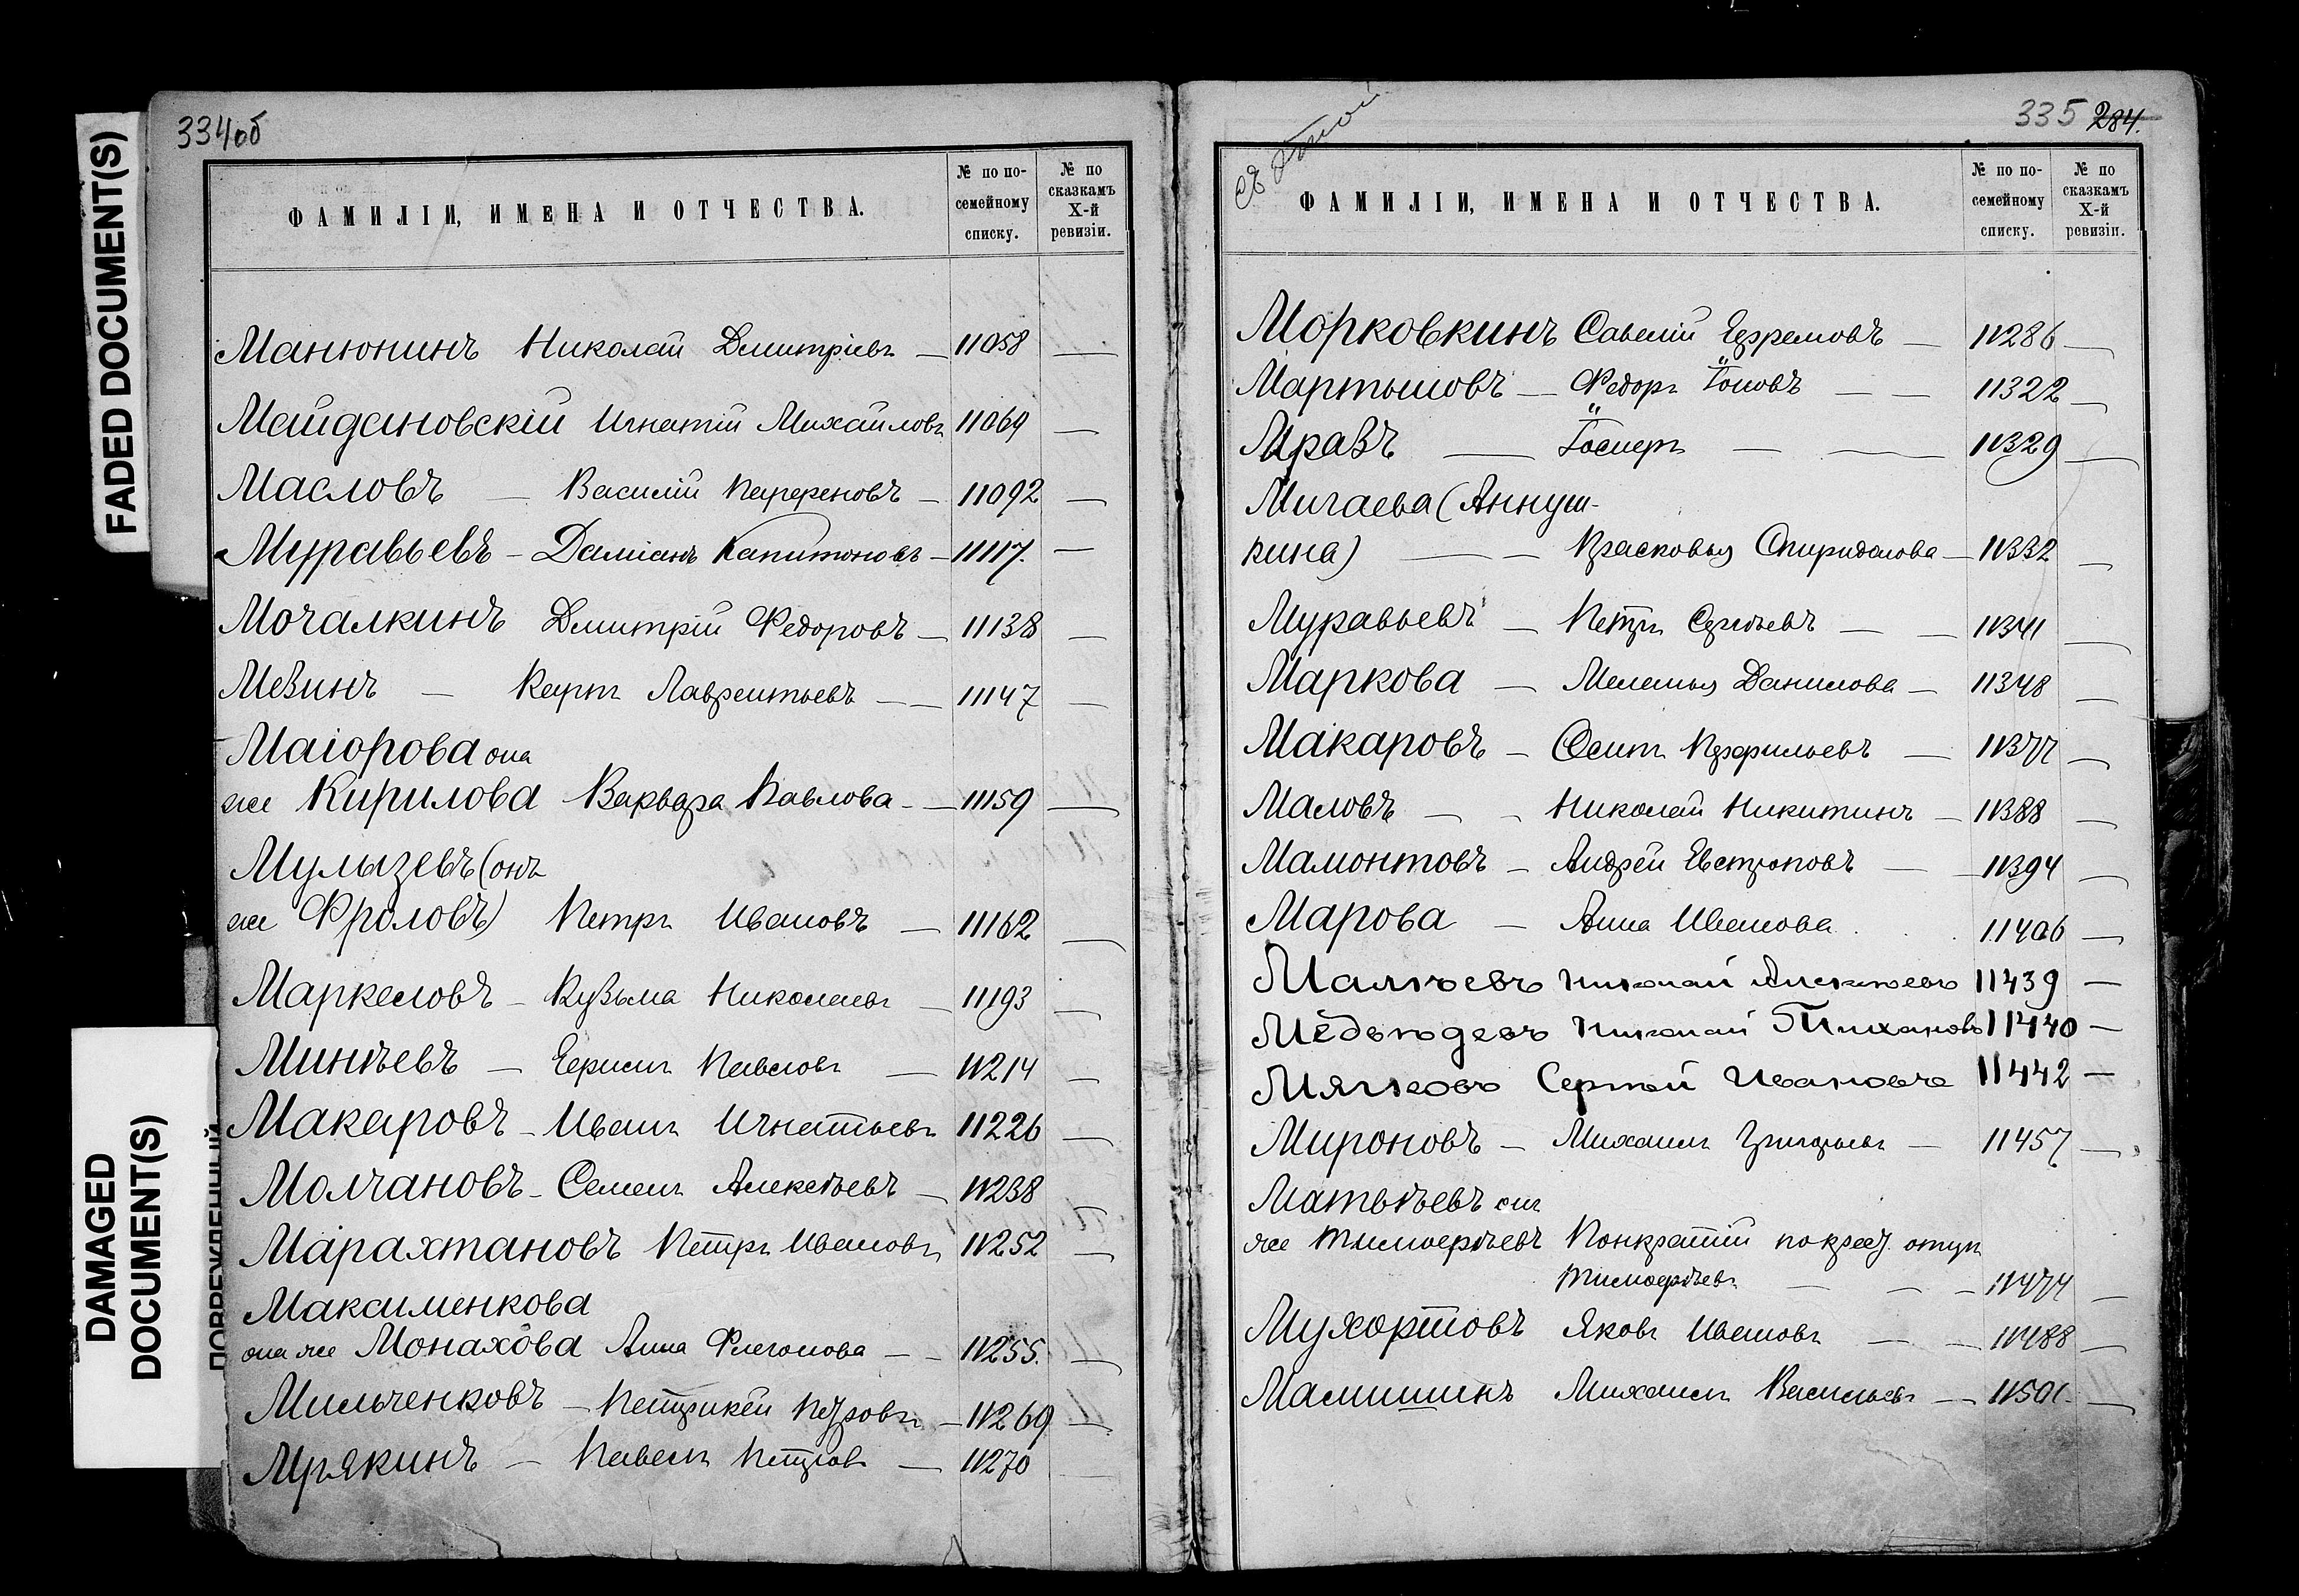 FADED DOCUMENT(S)
DAMAGED
DOCUMENT(S)
334 об
ФАМИЛІИ, ИМЕНА И ОТЧЕСТВА.
№ по по-
семейному
списку.
№ по
сказкамъ
X-й
ревизіи.
Манюнинъ Николай Дмитріевъ — 11058 —
Майдановскій Игнатій Михайловъ 11069 —
Масловъ — Василій Парфеновъ — 11092 —
Муравьевъ — Даміанъ Капитоновъ — 11117. —
Мочалкинъ Дмитрій Федоровъ — 11138 —
Мезинъ — Карпъ Лаврентьевъ — — 11147 —
Маіорова она
же Кирилова Варвара Павлова — — 11159 —
Мулызевъ (онъ
же Фроловъ) Петръ Ивановъ — 11162 —
Маркеловъ — Кузьма Николаевъ — 11193 —
Минѣевъ — Герасимъ Павловъ — 11214 —
Макаровъ — Иванъ Игнатьевъ 11226 —
Молчановъ — Семенъ Алексѣевъ — 11238 —
Марахтановъ Петръ Ивановъ 11252 —
Максименкова
она же Монахова Анна Флегонова — — 11255. —
Мильченковъ — Патрикѣй Петровъ — 11269 —
Мрякинъ — Павелъ Петровъ — 11270 —
335 284.
ФАМИЛІИ, ИМЕНА И ОТЧЕСТВА.
№ по по-
семейному
списку.
№ по
сказкамъ
X-й
ревизіи.
Морковкинъ Савелій Ефремовъ — 11286 —
Мартышовъ — Федоръ Іоновъ — — 11322 —
Мразъ — — — 11329 —
Мигаева (Аннуш-
кина) — — Прасковья Спиридонова — 11332 —
Муравьевъ — Петръ Сергѣевъ — — 11341 —
Маркова — Меланья Данилова — 11348 —
Макаровъ — Осипъ Прафильевъ — 11377 —
Маловъ — — Николай Никитинъ — 11388 —
Мамонтовъ — Андрей Евстроповъ — — 11394 —
Марова — Анна Иванова . . 11406 —
Малѣевъ Николай Алексѣевъ 11439 —
Медвѣдевъ Николай Тихановъ 11440 —
Мягковъ Сергѣй Ивановъ 11442 —
Мироновъ — Михаилъ Григорьевъ — 11457 —
Матвѣевъ онъ
же Тимофѣевъ Понкратій по крест. отцу
Тимофѣевъ — — — 11474 —
Мухортовъ Яковъ Ивановъ — — 11488 —
Мамишинъ Михаилъ Васильевъ — — 11501. —